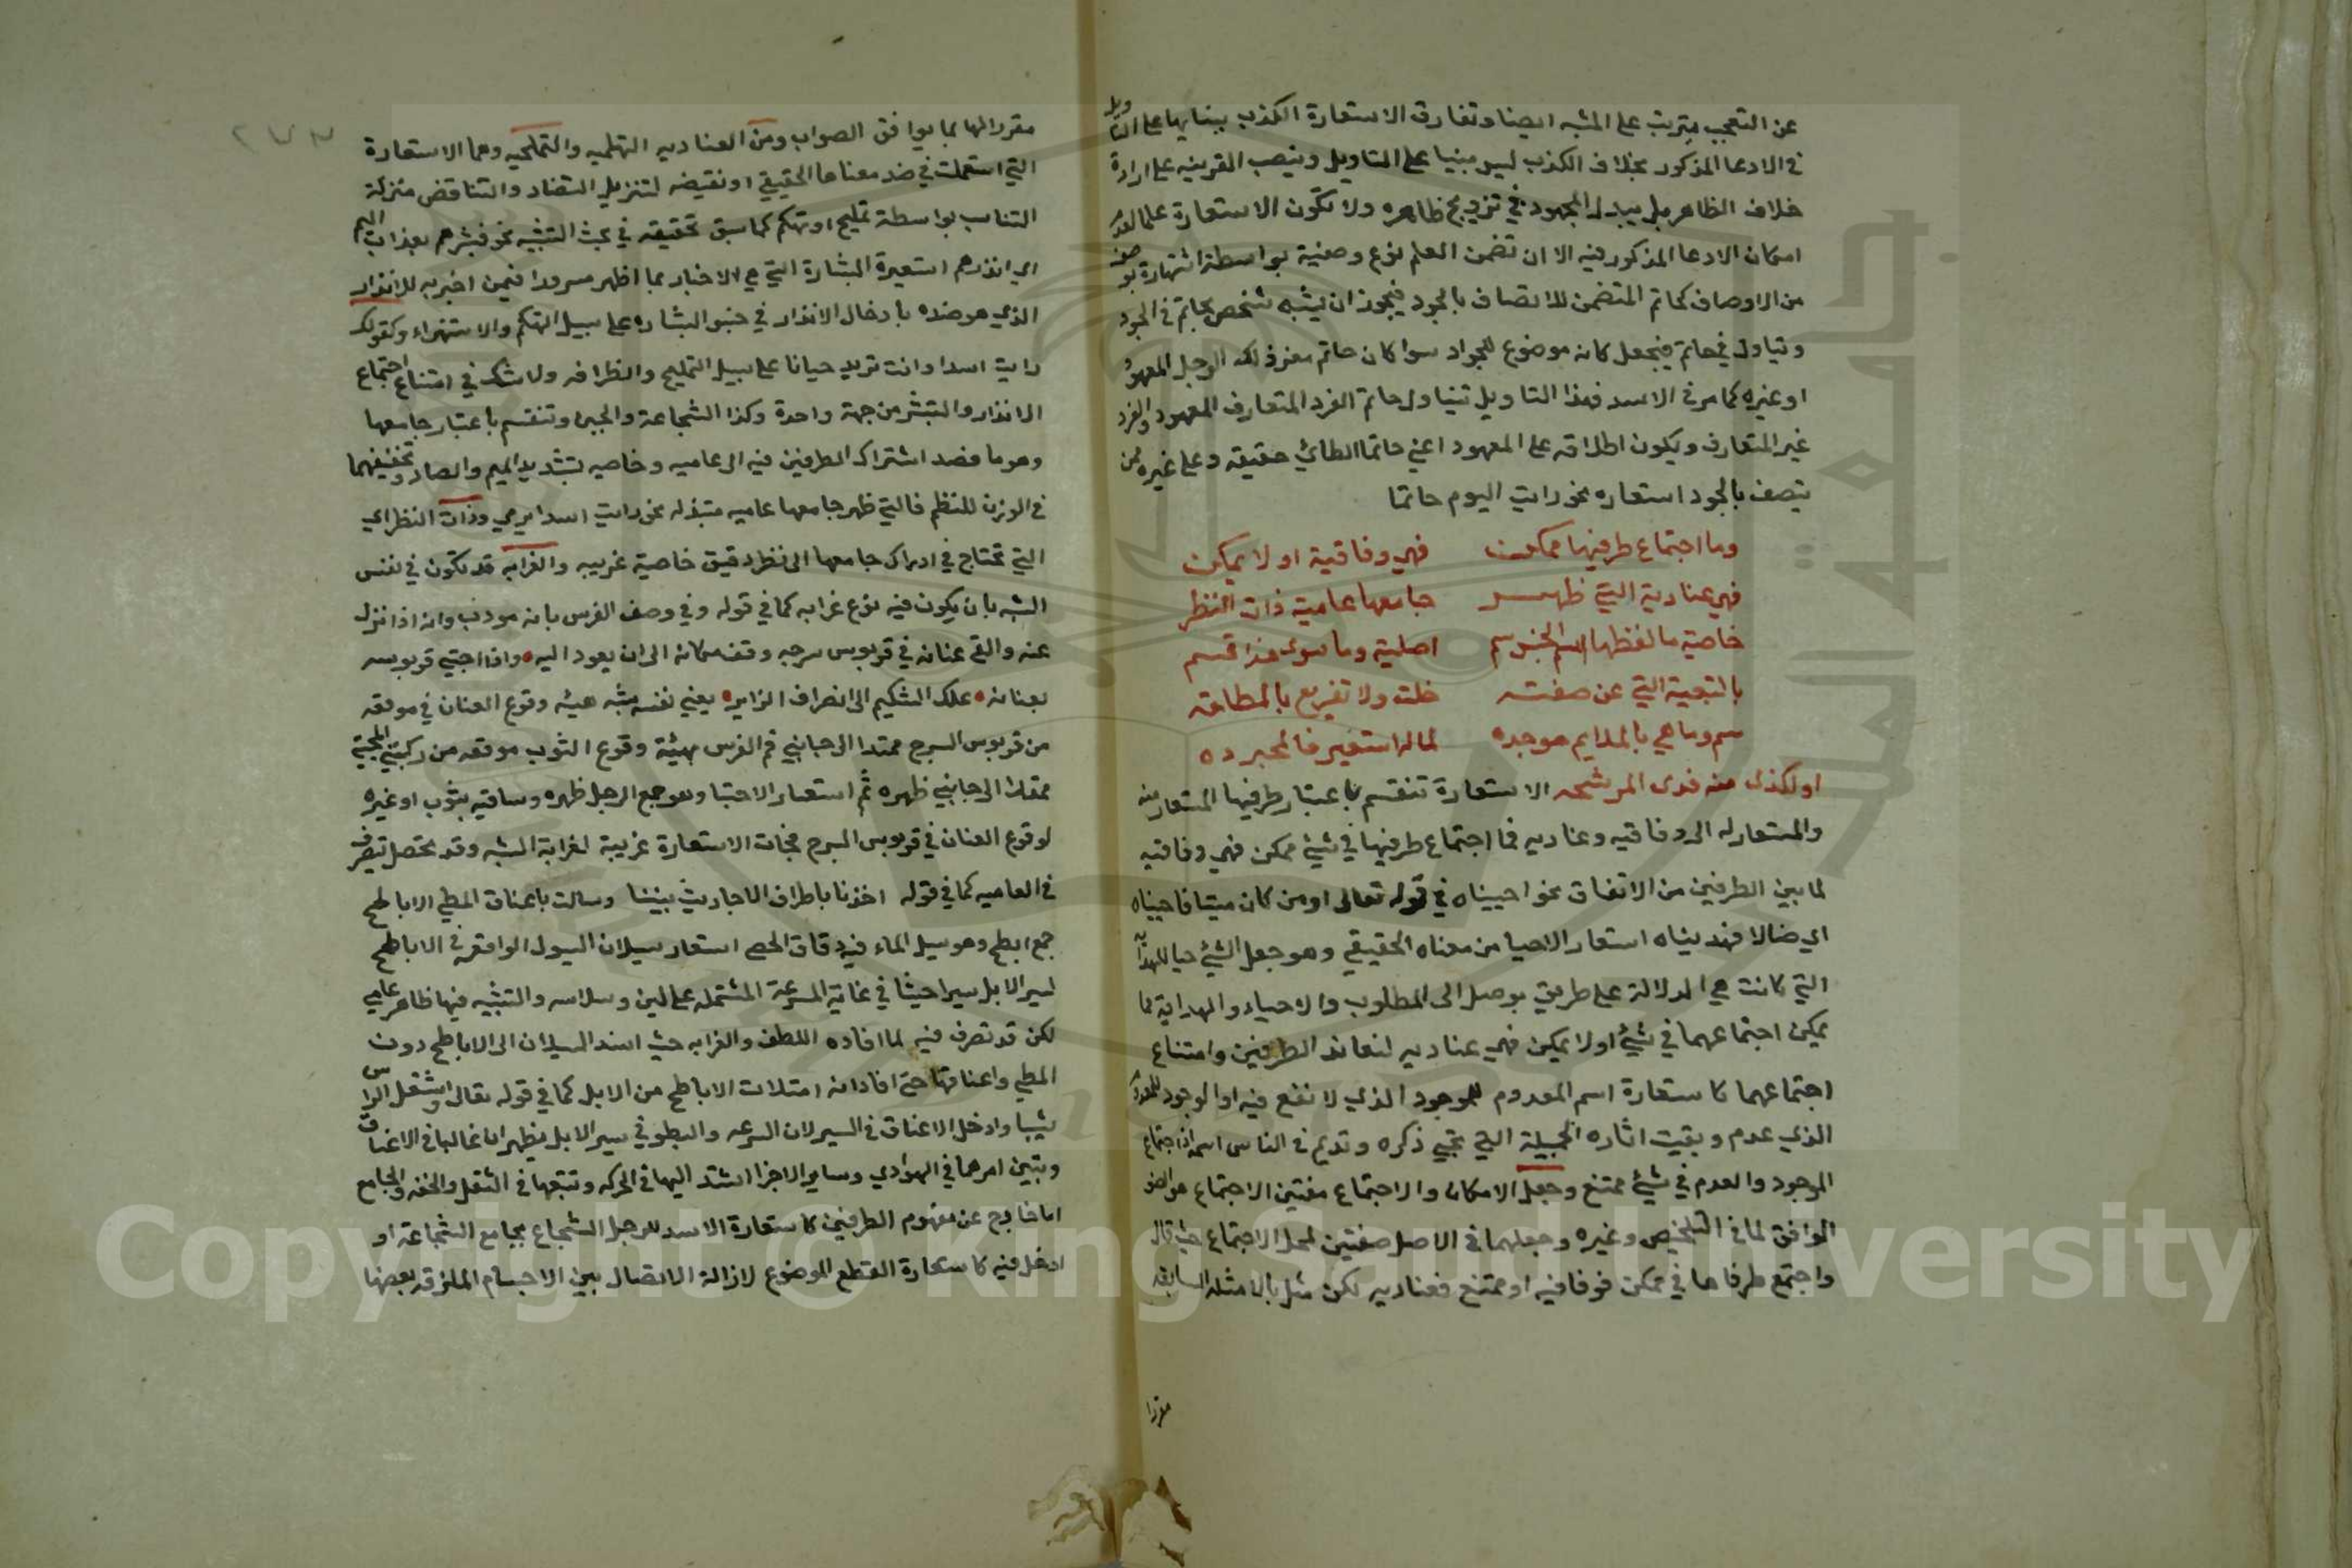 عن التعجب مترتب على المشبه ايضا وتفارق الاستعارة الكذب ببنايها على التاويل
في الادعا المذكور بخلاف الكذب ليس مبنيا على التاويل وبنصب القرينه على ارادة
خلاف الظاهر بل يبذل المجهود في ترويج ظاهره ولا تكون الاستعارة علما لعدم
امكان الادعا المذكور فيه الا ان تضمن العلم نوع وصفية بواسطة اشتهاره بوصف
من الاوصاف كحاتم المتضمن للاتصاف بالجود فيجوز ان يشبه شخص بحاتم في الجود
ويتاول في حاتم فيجعل كانه موضوع للجواد سوا كان حاتم معنى ذلك الرجل المعهود
او غيره كما مر في الاسد فبهذا التاويل تتناول حاتم الفرد المتعارف المعهود والفرد
غير المتعارف ويكون اطلاقه على المعهود اعني حاتما الطائي حقيقه وعلى غيره ممن
يتصف بالجود استعاره نحو رايت اليوم حاتما
وما اجتماع طرفيها ممكن فهي وفاقية او لا يمكن
فهي عنادية التي ظهر جامعها عامية ذات النظر
خاصية ما لفظها اسم الجنس سم اصلية وما سوى هذا قسم
بالتبعية التي عن صفة خلت ولا تفريع بالمطلقة
سم وما هي بالملايم موجده لما له استعير فالمجرده
او لكذى منه فدى المرشحه الاستعارة تنقسم باعتبار طرفيها المستعار منه
والمستعار له الى وفاقيه وعناديه فما اجتماع طرفيها في شيئ ممكن فهي وفاقيه
لما بين الطرفين من الاتفاق نحو احييناه في قوله تعالى او من كان ميتا فاحييناه
اي ضالا فهديناه استعار الاحيا من معناه الحقيقي وهو جعل الشيئ حيا للهداية
التي كانت هي الدلالة على طريق يوصل الى المطلوب والاحياء والهداية مما
يمكن اجتماعهما في شيئ او لا يمكن فهي عناديه لتعاند الطرفين وامتناع
اجتماعهما كاستعارة اسم المعدوم للموجود الذي لا نفع فيه او الموجود للمعدوم
الذي عدم وبقيت اثاره الجميلة التي تحيي ذكره وتديم في الناس اسمه اذ اجتماع
الوجود والعدم في شيئ ممتنع وجعل الامكان والاجتماع صفتين الاجتماع هو
الموافق لما في التلخيص وغيره وجعلهما في الاصل صفتين لمحل الاجتماع حيث قال
واجتمع طرفاها في ممكن فوفاقيه او ممتنع فعناديه لكن مثل بالامثله السابقه
مقررا
٢٧٣
مقررا لها بما يوافق الصواب ومن العناديه التهكميه والتمليحيه وهما الاستعارة
التي استعملت في ضد معناها الحقيقي او نقيضه لتنزيل التضاد والتناقض منزلة
التناسب بواسطة تمليح او تهكم كما سبق تحقيقه في بحث التشبيه نحو فبشرهم بعذاب اليم
اي انذرهم استعيرة البشارة التي هي الاخبار بما اظهر سرورا فيمن اخبر به للانذار
الذي هو ضده بادخال الانذار في جنس البشاره على سبيل التهكم والاستهزاء وكقولك
رايت اسدا وانت تريد جبانا على سبيل التمليح والظرافه ولا شك في امتناع اجتماع
الانذار والتبشر من جهة واحدة وكذا الشجاعة والجبن وتنقسم باعتبار جامعها
وهو ما قصد اشتراك الطرفين فيه الى عاميه وخاصيه بتشديد الميم والصاد وتخفيفهما
في الوزن للنظم فالتي ظهر جامعها عاميه مبتذله نحو رايت اسدا يرمي وذات النظر اي
التي تحتاج في ادراك جامعها الى نظر دقيق خاصية غريبه والغرابه قد تكون في نفس
الشبه بان يكون فيه نوع غرابه كما في قوله وفي وصف الفرس بانه مودب وانه اذا نزل
عنه والقى عنانه في قربوس سرجه وقف مكانه الى ان يعود اليه • واذا احتبى قربوسه
بعنانه • علك الشكيم الى انصراف الزاير • يعني نفسه شبه هيئه وقوع العنان في موقعه
من قربوس السرج ممتدا الى جانبي فم الفرس بهيئة وقوع الثوب موقعه من ركبتي المحتبي
ممتدا الى جانبي ظهره ثم استعار الاحتبا وهو جمع الرجل ظهره وساقيه بثوب او غيره
لوقوع العنان في قربوس السرج فجات الاستعارة غريبة لغرابة الشبه وقد تحصل بتصرف
في العاميه كما في قوله اخذنا باطراف الاحاديث بيننا وسالت باعناق المطي الاباطح
جمع ابطح وهو سيل الماء فيه دقاق الحصى استعار سيلان السيول الواقعه في الاباطح
لسير الابل سيرا حثيثا في غاية السرعة المشتمله على لين وسلاسه والتشبيه فيها ظاهر عامي
لكن قد تصرف فيه لما افاده اللطف والغرابه حيث اسند السيلان الى الاباطح دون
المطي واعناقها حتى افاد انه امتلات الاباطح من الابل كما في قوله تعالى واشتعل الراس
شيبا وادخل الاعناق في السير لان السرعه والبطو في سير الابل يظهران غالبا في الاعناق
ويتبين امرهما في الهوادي وساير الاجزا تستند اليها في الحركه وتتبعها في الثقل والخفه والجامع
اما خارج عن مفهوم الطرفين كاستعارة الاسد للرجل الشجاع بجامع الشجاعة او
ادخل فيه كاستعارة القطع الموضوع لازالة الاتصال بين الاجسام الملزقه بعضها
Copyright © King Saud University